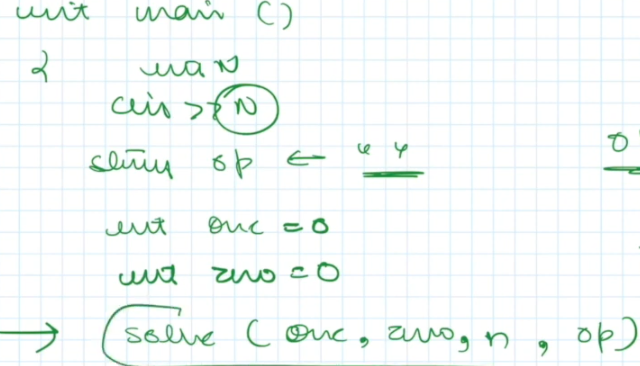 int main ()
{ int N
cin >> N
string op ← " "
0
int one = 0
int zero = 0
→ solve (one, zero, n, op)